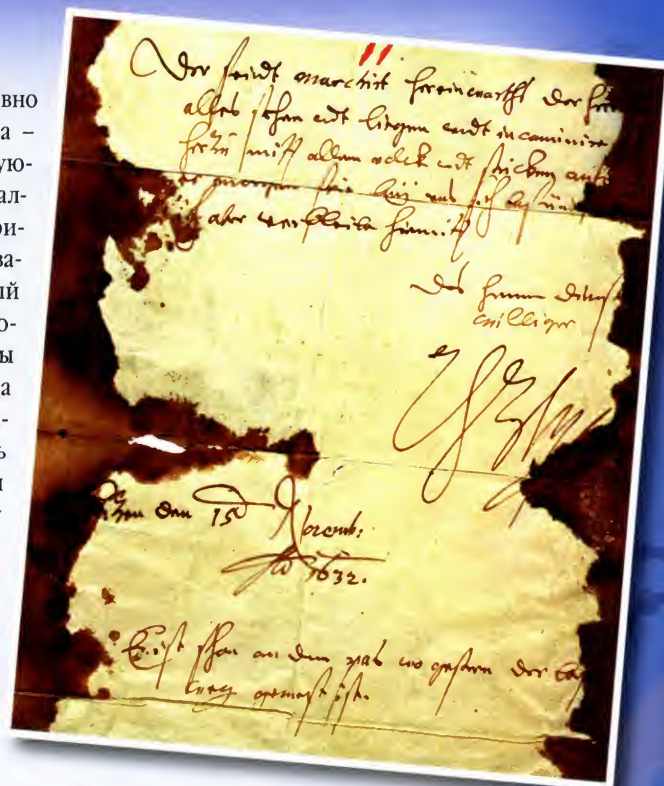 вно
а –
ую-
ал-
ри-
ва-
ый
о-
ы
а
-
ь
11
Der feindt marchirt hereinwarths der herr
alles sthen undt ligen undt incaminire
herzu mitt allem volck undt stücken
er morgen frue bey uns sich befünd
ich aber verbleibe hiermitt
Des herren dienst
williger
den 15 Novemb:
Ao 1632.
Er ist schon an dem pas wo gestern der
weeg gewest ist.